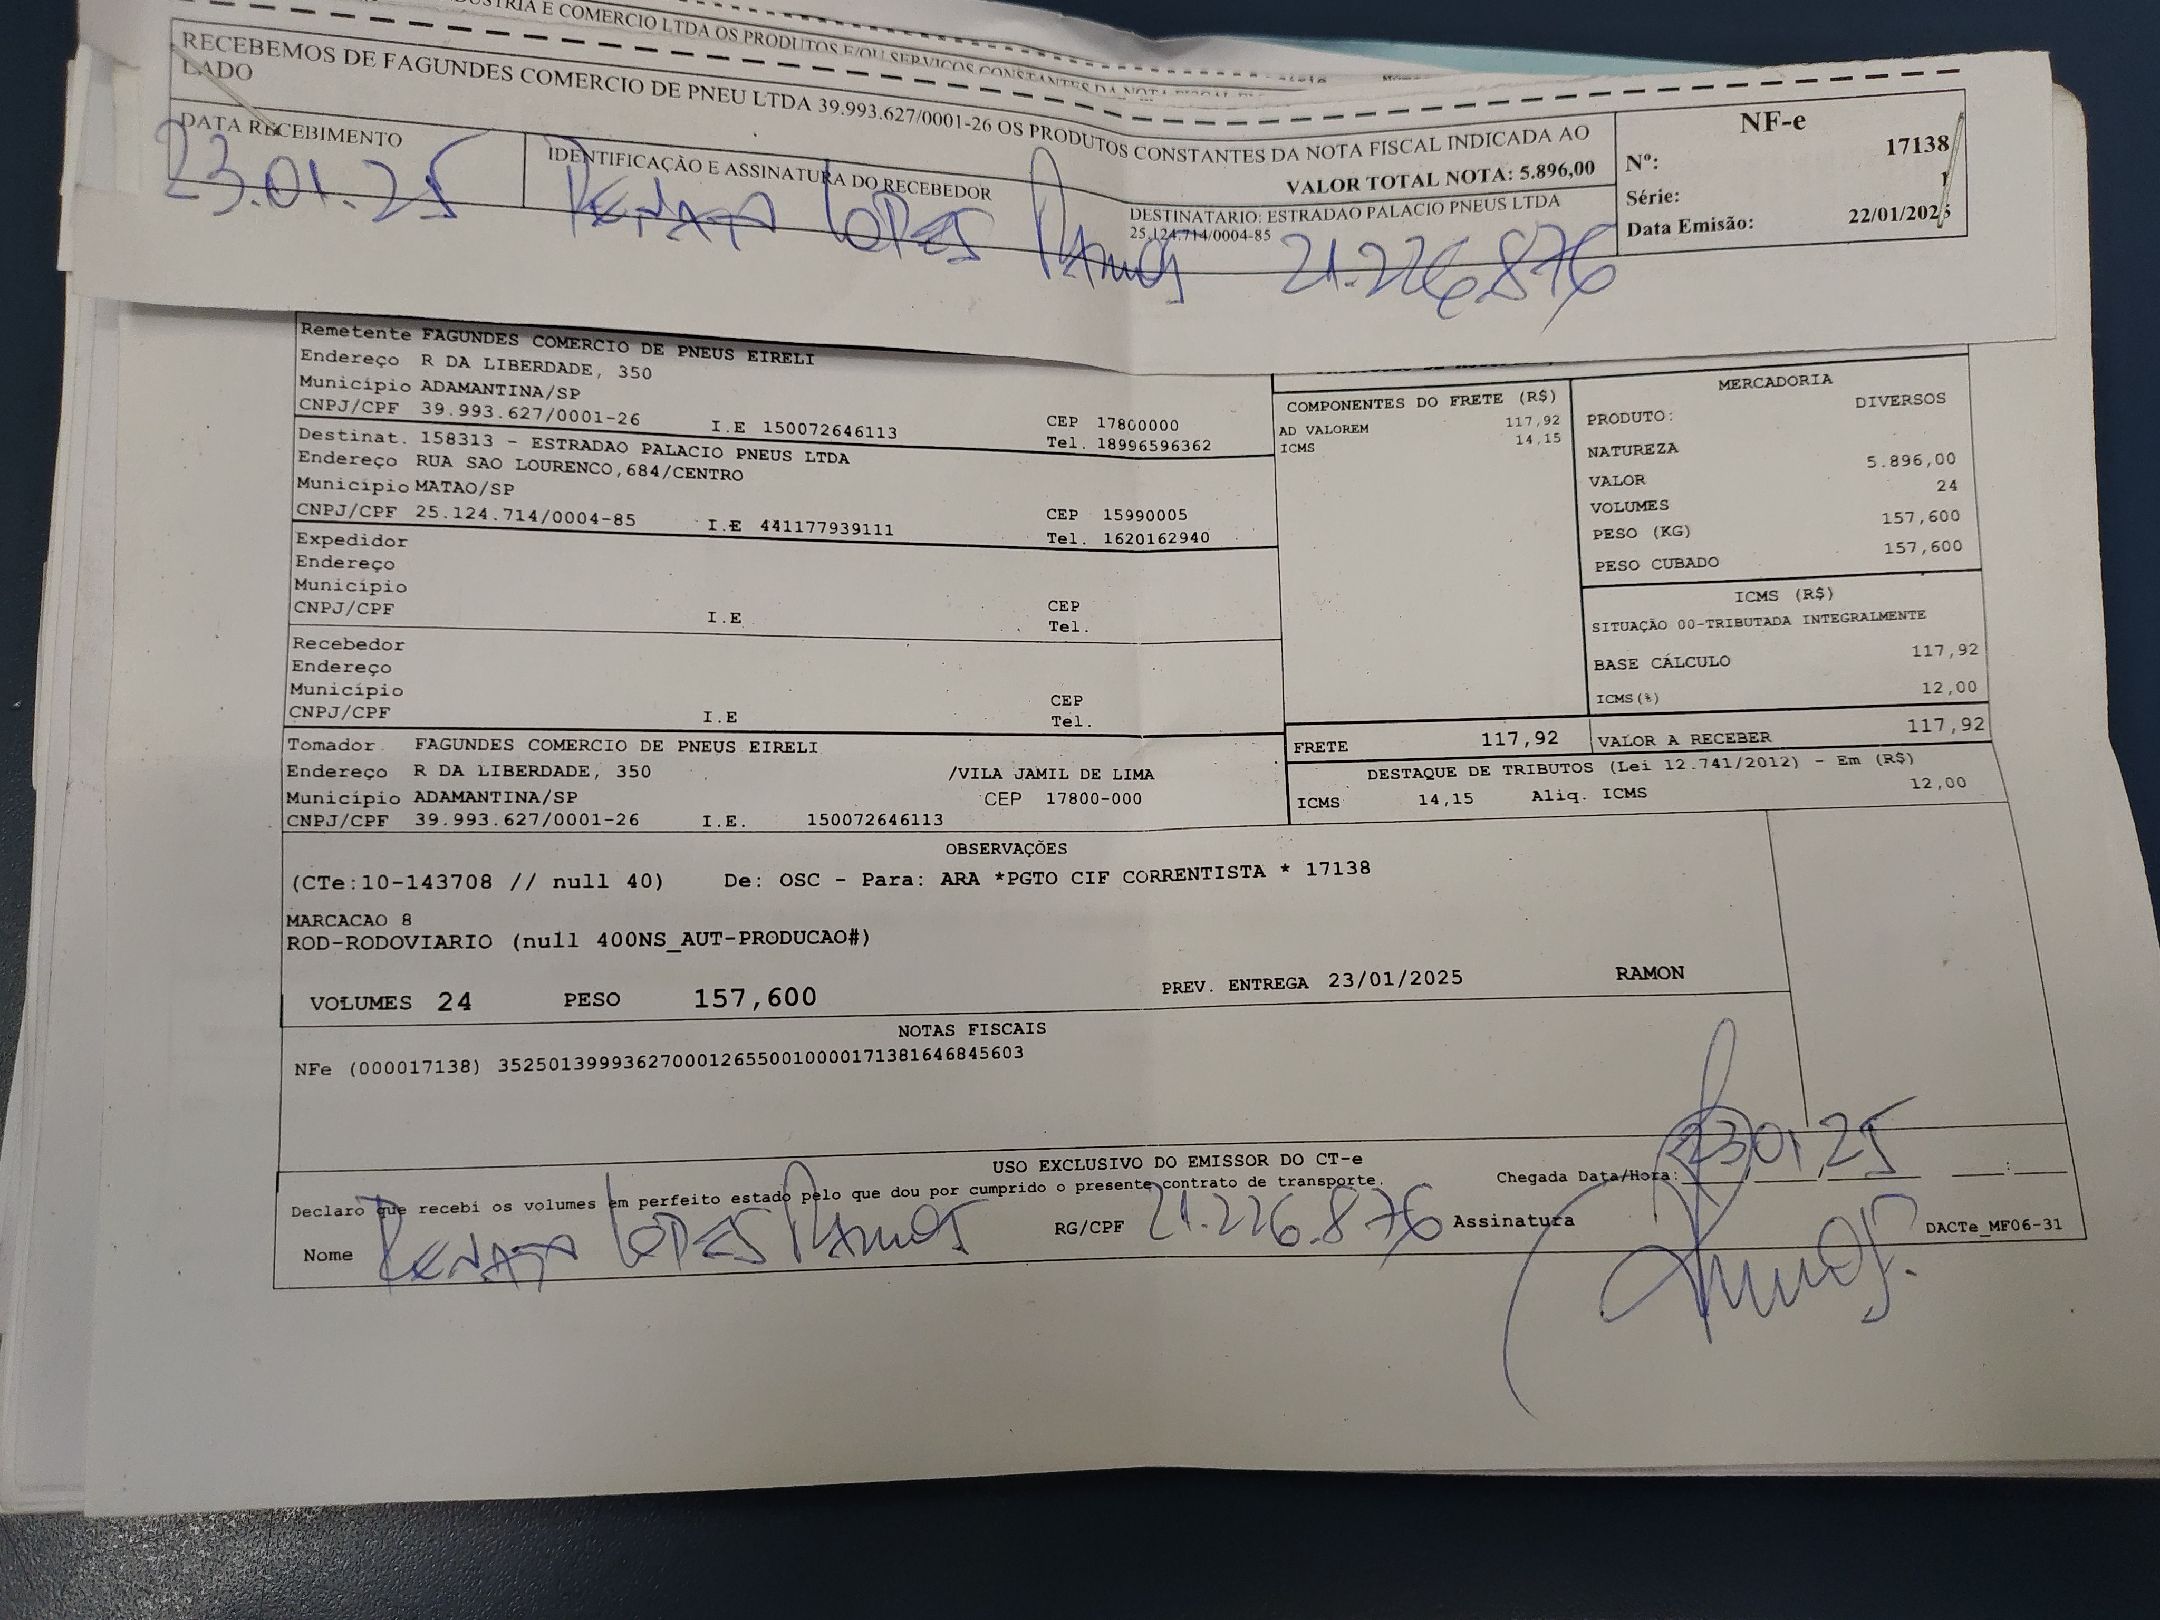 USTRIA E COMERCIO LTDA OS PRODUTOS E/OU SERVIÇOS CONSTANTES DA NOTA FISCAL
RECEBEMOS DE FAGUNDES COMERCIO DE PNEU LTDA 39.993.627/0001-26 OS PRODUTOS CONSTANTES DA NOTA FISCAL INDICADA AO
LADO
VALOR TOTAL NOTA: 5.896,00
DATA RECEBIMENTO
23.01.25
IDENTIFICAÇÃO E ASSINATURA DO RECEBEDOR
RENATA LOPES RAMOS 21.226.876
DESTINATARIO: ESTRADAO PALACIO PNEUS LTDA
25.124.714/0004-85
NF-e
Nº: 17138
Série: 1
Data Emisão: 22/01/2025
Remetente FAGUNDES COMERCIO DE PNEUS EIRELI
Endereço R DA LIBERDADE, 350
Município ADAMANTINA/SP
CNPJ/CPF 39.993.627/0001-26 I.E 150072646113
CEP 17800000
Tel. 18996596362
Destinat. 158313 - ESTRADAO PALACIO PNEUS LTDA
Endereço RUA SAO LOURENCO,684/CENTRO
Município MATAO/SP
CNPJ/CPF 25.124.714/0004-85 I.E 441177939111
CEP 15990005
Tel. 1620162940
Expedidor
Endereço
Município
CNPJ/CPF I.E
CEP
Tel.
Recebedor
Endereço
Município
CNPJ/CPF I.E
CEP
Tel.
Tomador FAGUNDES COMERCIO DE PNEUS EIRELI
Endereço R DA LIBERDADE, 350 /VILA JAMIL DE LIMA
Município ADAMANTINA/SP CEP 17800-000
CNPJ/CPF 39.993.627/0001-26 I.E. 150072646113
COMPONENTES DO FRETE (R$)
AD VALOREM 117,92
ICMS 14,15
MERCADORIA
PRODUTO: DIVERSOS
NATUREZA
VALOR 5.896,00
VOLUMES 24
PESO (KG) 157,600
PESO CUBADO 157,600
ICMS (R$)
SITUAÇÃO 00-TRIBUTADA INTEGRALMENTE
BASE CÁLCULO 117,92
ICMS(%) 12,00
FRETE 117,92 VALOR A RECEBER 117,92
DESTAQUE DE TRIBUTOS (Lei 12.741/2012) - Em (R$)
ICMS 14,15 Aliq. ICMS 12,00
OBSERVAÇÕES
(CTe:10-143708 // null 40) De: OSC - Para: ARA *PGTO CIF CORRENTISTA * 17138
MARCACAO 8
ROD-RODOVIARIO (null 400NS_AUT-PRODUCAO#)
VOLUMES 24 PESO 157,600 PREV. ENTREGA 23/01/2025 RAMON
NOTAS FISCAIS
NFe (000017138) 35250139993627000126550010000171381646845603
USO EXCLUSIVO DO EMISSOR DO CT-e
Declaro que recebi os volumes em perfeito estado pelo que dou por cumprido o presente contrato de transporte.
Chegada Data/Hora: 23 01 25 :
Nome RENATA LOPES RAMOS RG/CPF 21.226.876 Assinatura Ramos.
DACTe_MF06-31